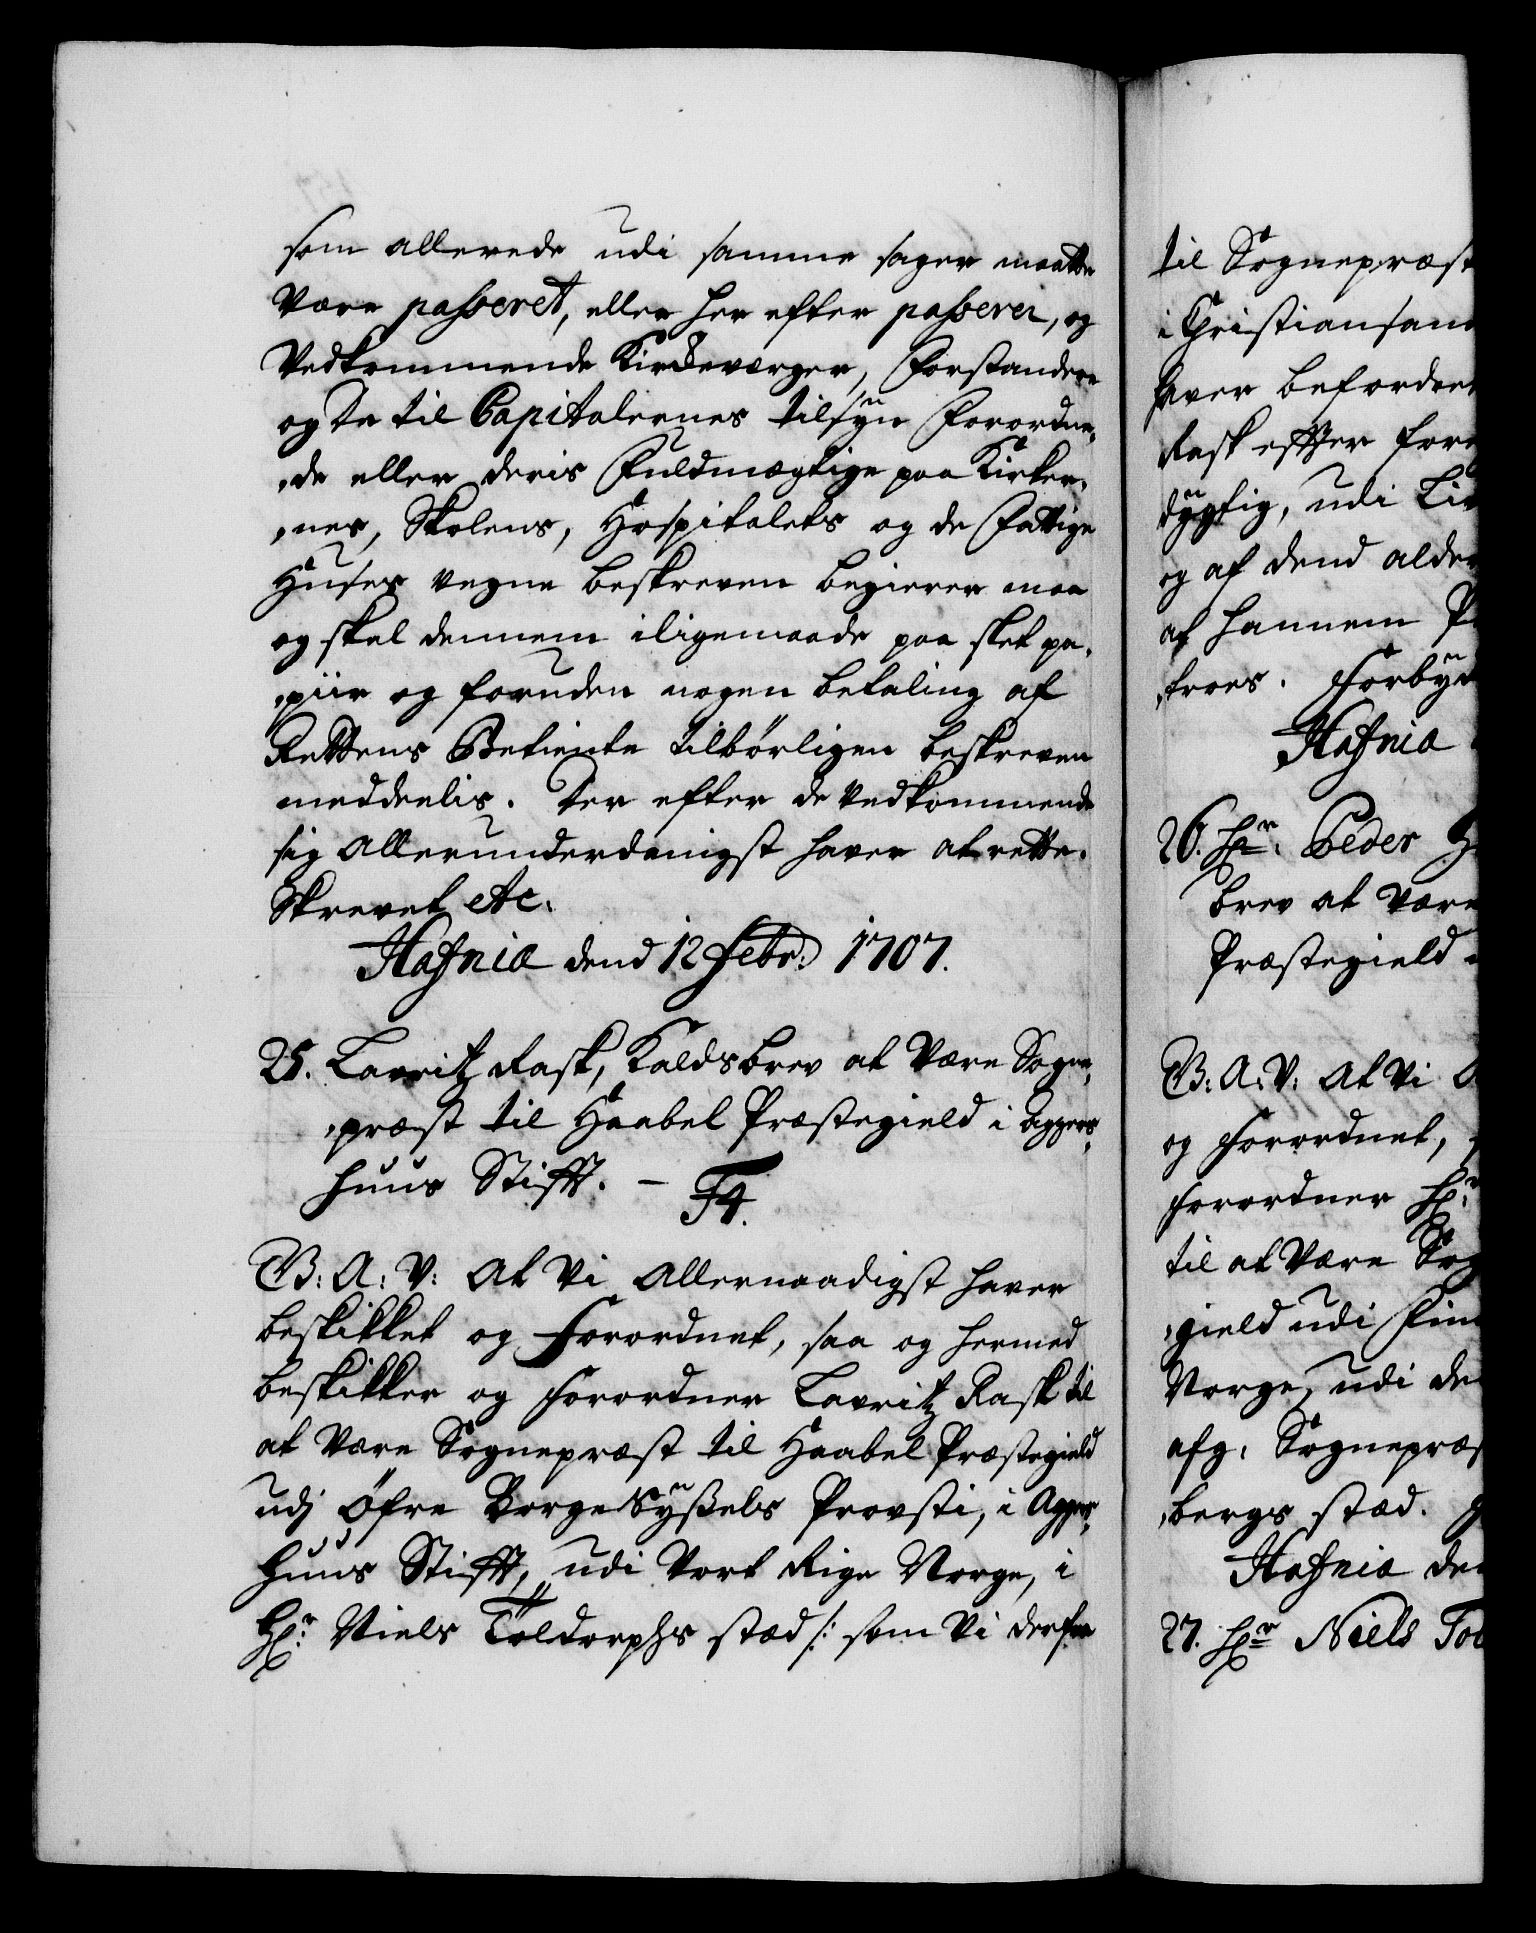 som allerede udi samme sager maatte
være passeret, eller her efter passerer, og
Vedkommende Kirkeværger, Forstandere
og de til Capitalernes tilsyn Forordne,
,de eller deris Fuldmægtige paa Kirker,
,nes, Skolens, Hospitalets og de Fattige
Huses vegne beskreven begierer maa
og skal dennem iligemaade paa slet pa,
,piir og foruden nogen betaling af
Rettens Betiente tilbørligen beskreven
meddeelis. Der efter de vedkommende
sig allerunderdanigst haver at rette.
Skrevet etc.
Hafnia dend 12 Febr: 1707.
25. Lauritz Rask, Kaldsbrev at være Sogne,
,præst til Haabel Præstegield i Aggers,
huus Stifft. - F4.
G: A: V: At Vi Allernaadigst haver
beskikket og Forordnet, saa og hermed
beskikker og Forordner Lauritz Rask til
at være Sognepræst til Haabel Præstegield
udj Øfre Borge Sysßels Provsti, i Agger,
huus Stifft, udi Vort Rige Norge, i
Hr: Niels Toldorphs stæd /: som Vi derfra
til Sognepræst
i Christiansand
haver befordret
Rask efter fore
dygtig, udi Liv
og af dend alder
at hannem P
,troes. Forbyd
Hafnia
26. Hr: Peder
brev at være
Præstegield
G: A: V: At Vi
og Forordnet,
Forordner Hr:
til at være Sog
,gield udi Fin
Norge, udi de
afg: Sognepræs
,bergs stæd.
Hafnia de
27. Hr Niels Tol